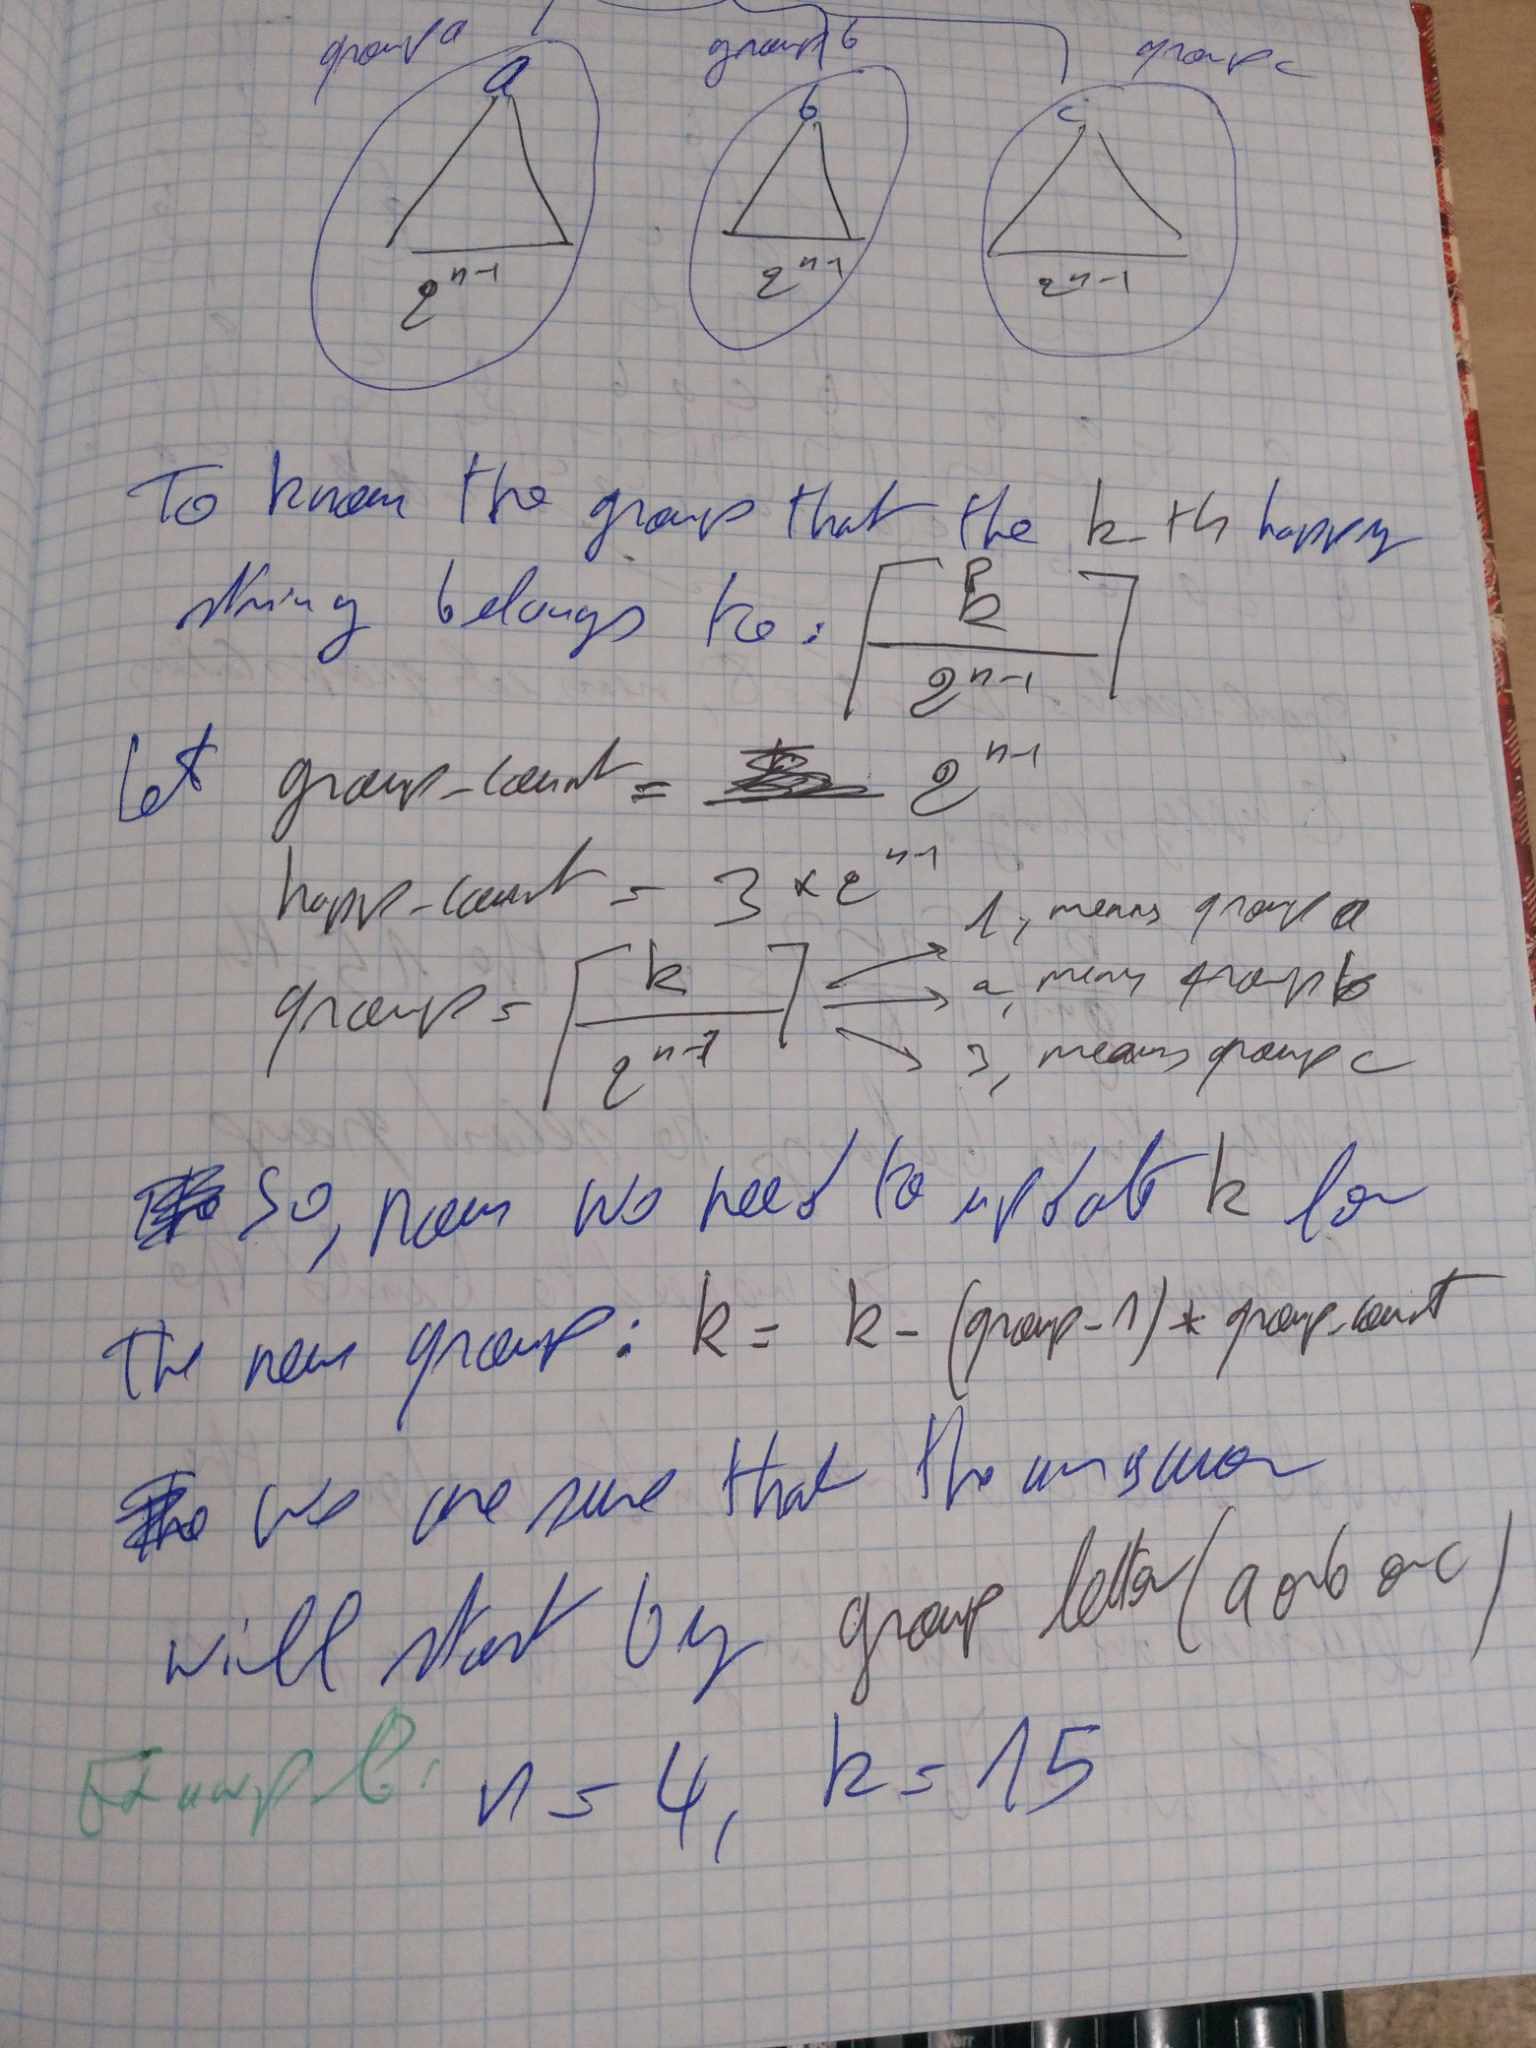 group a group b group c
a b c
2^{n-1} 2^{n-1} 2^{n-1}
To know the group that the k-th happy
string belongs to: ⌈k / 2^{n-1}⌉
Let group-count = 2^{n-1}
happy-count = 3 × 2^{n-1}
1, means group a
group = ⌈k / 2^{n-1}⌉ 2, means group b
3, means group c
So, now we need to update k for
the new group: k = k - (group - 1) * group-count
We are sure that the answer
will start by group letter (a or b or c)
Example: n = 4, k = 15